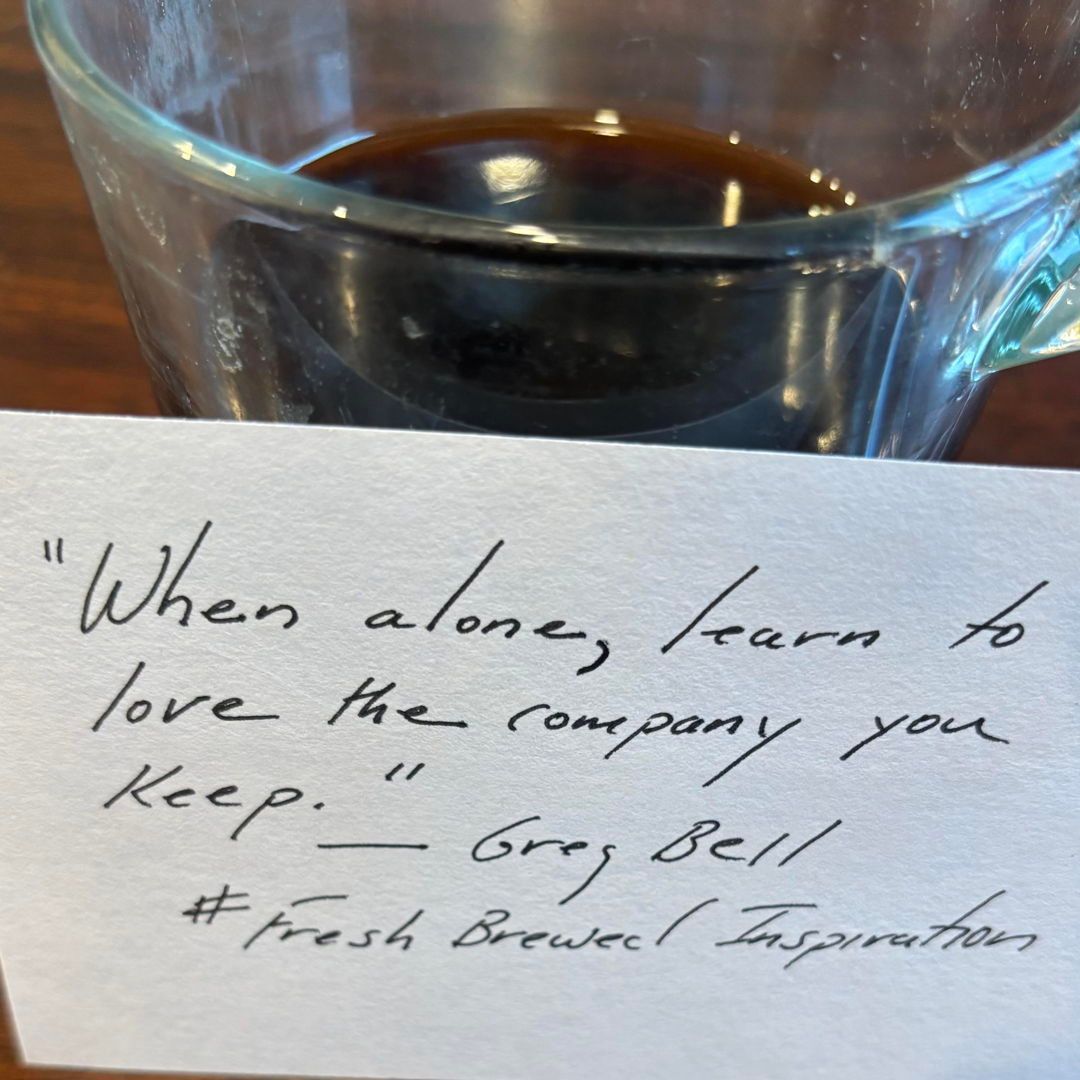 "When alone, learn to
love the company you
Keep."
— Greg Bell
# Fresh Brewed Inspiration